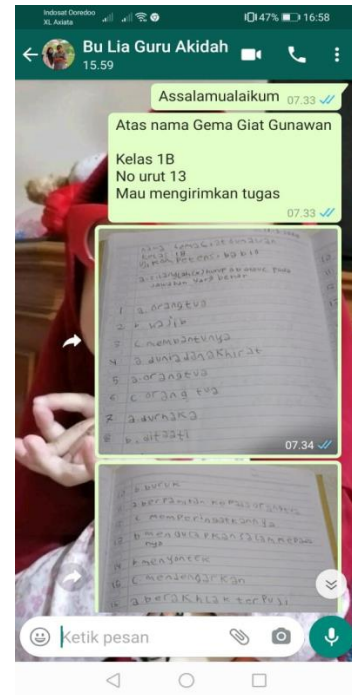 Indosat Ooredoo
XL Axiata
47% 16:58
Bu Lia Guru Akidah
15.59
Assalamualaikum 07.33
Atas nama Gema Giat Gunawan
Kelas 1B
No urut 13
Mau mengirimkan tugas
07.33
1 a. orangtua
2 b. wajib
3 c. membantunya
4 a. dunia dan akhirat
5 a. orangtua
6 c. orang tua
7 a. durhaka
8 b. ditaati
07.34
b. buruk
a. berpamitan kepada orangtua
c. memperingatkannya
b. mengucapkan salam
b. menyontek
c. mendengarkan
a. berakhlak terpuji
Ketik pesan